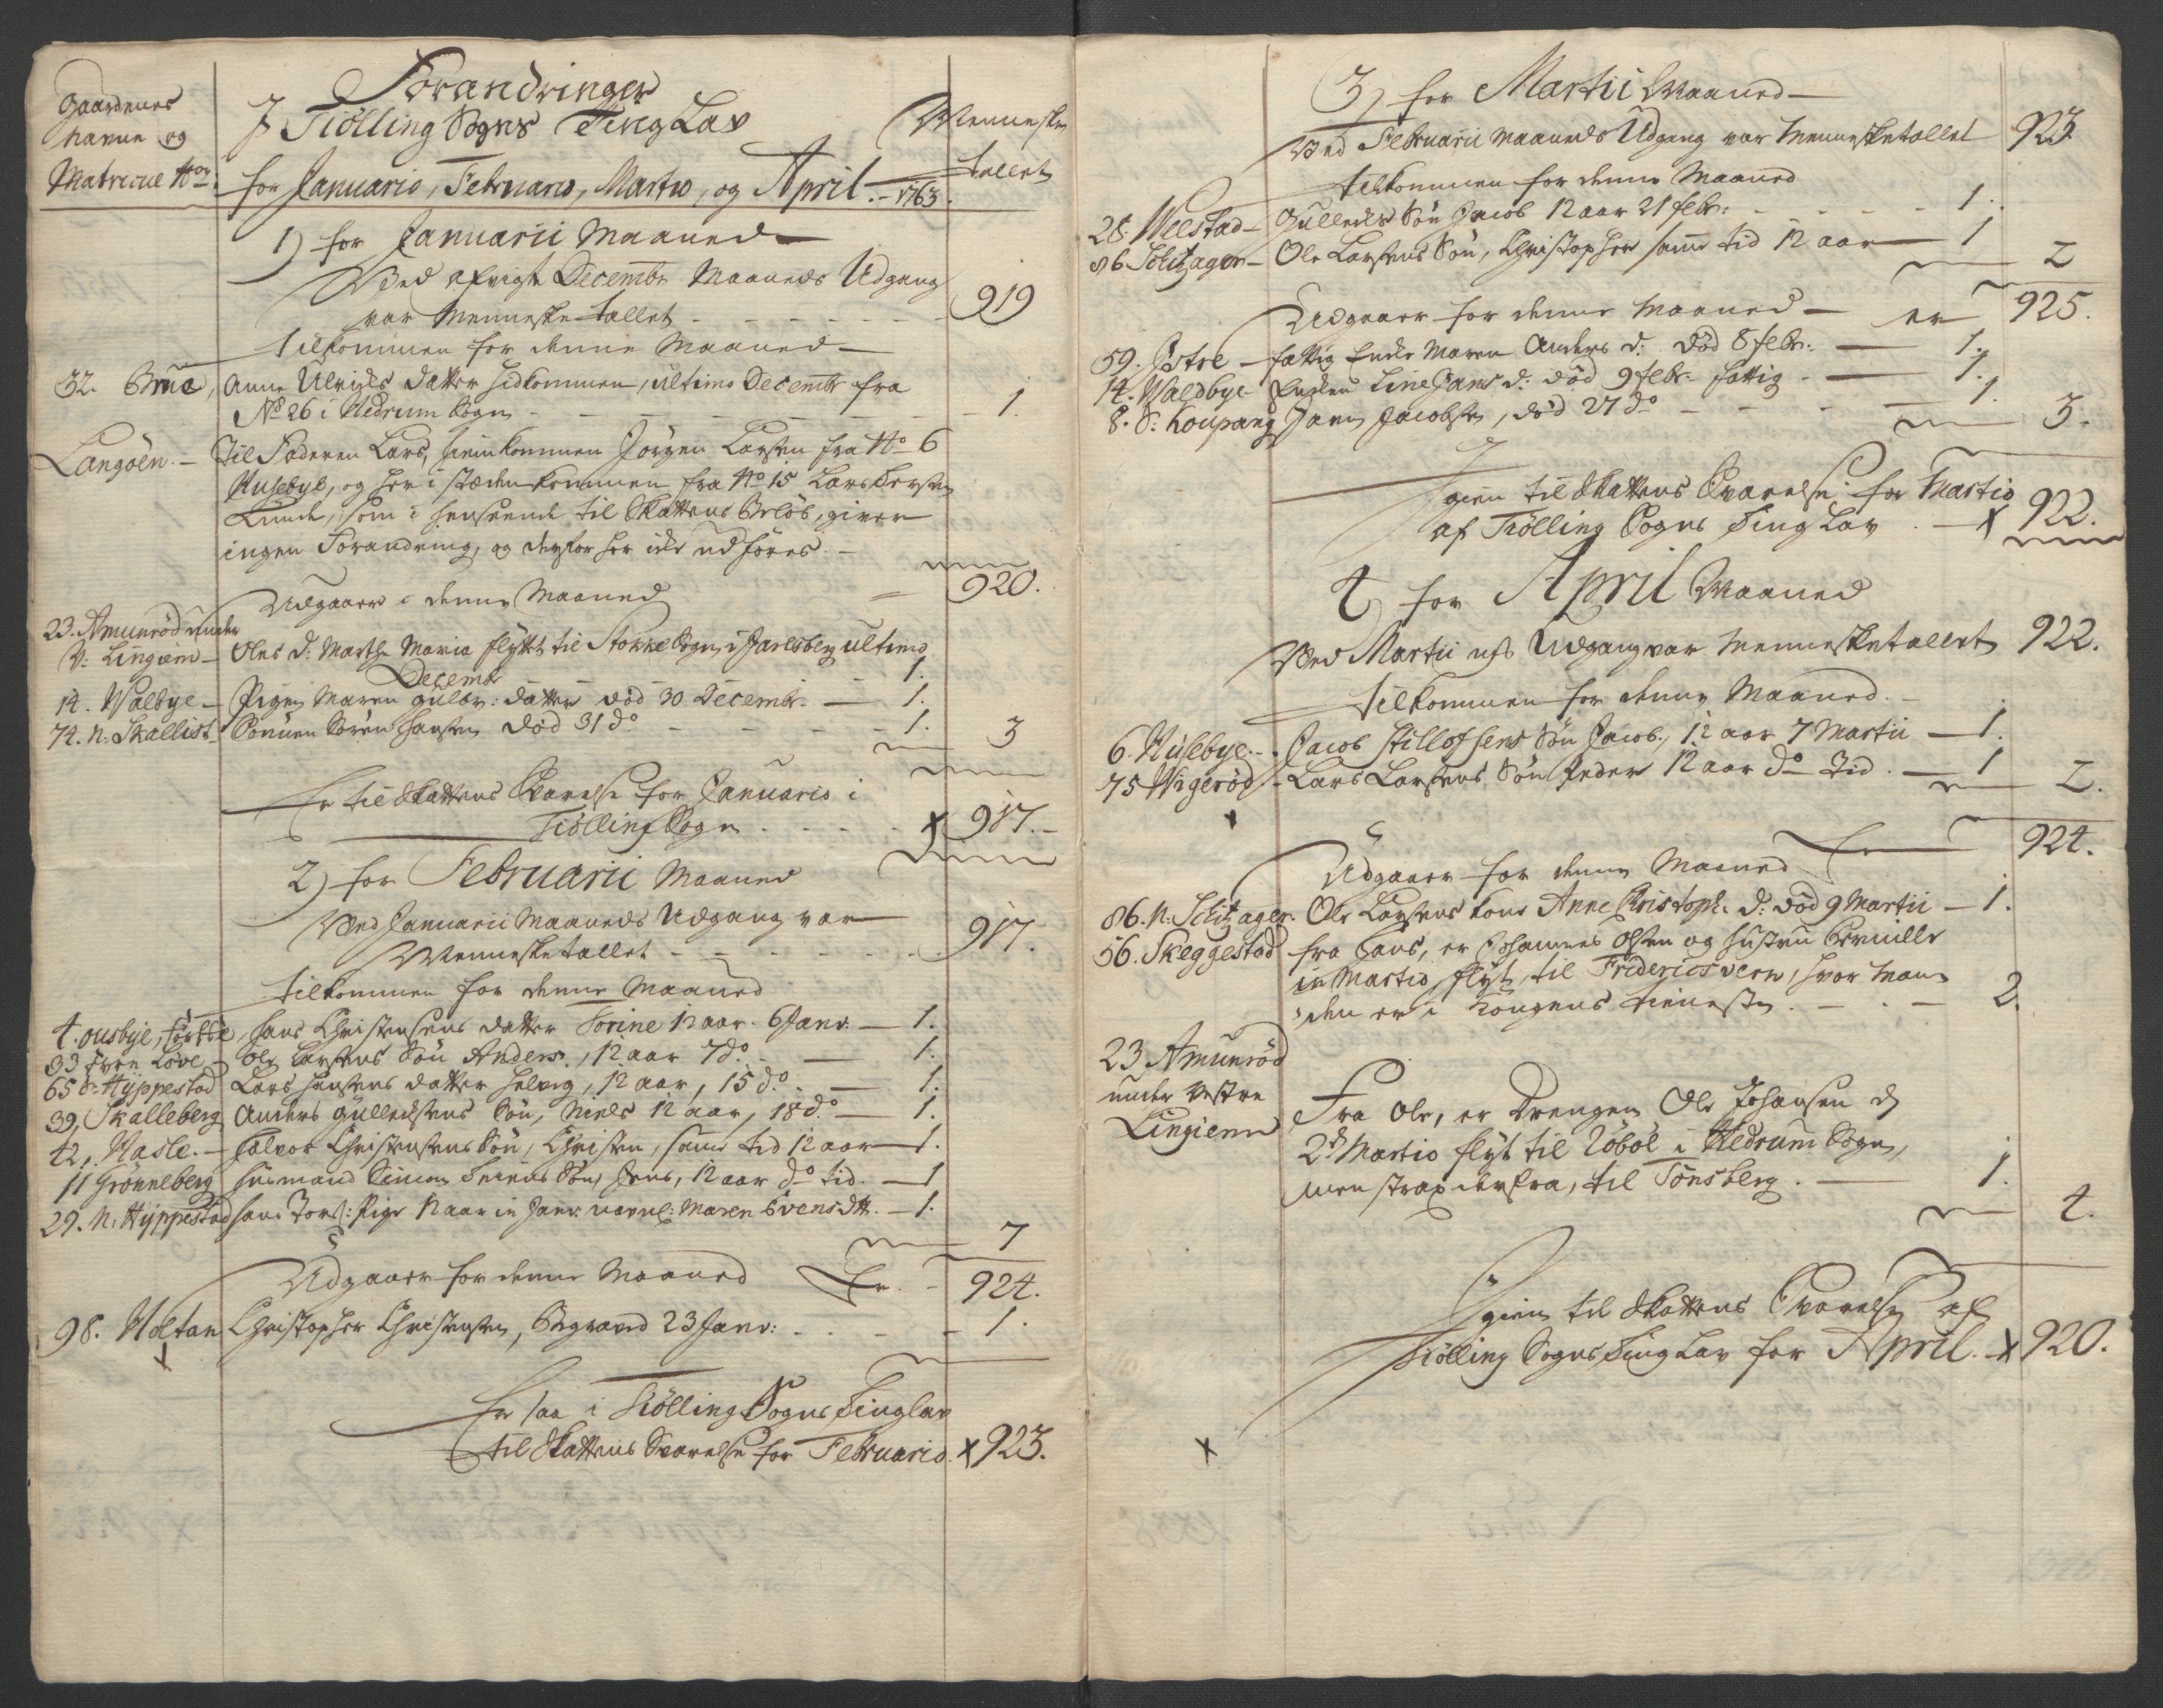 Gaardenes
Navne og
Matricul No
Forandringer
I Tiølling Sogns Ting Lav
for Januario, Februario, Martio, og April. 1763.
Menneske
tallet
1) for Januarii Maaned
Ved afvigte Decembr Maaneds Udgang
var Menneske tallet - 919
Tilkommen for denne Maaned
32. Brue, Anne Ulrichs datter hidkommen, ultimo Decembr fra
No 26 i Hedrum Sogn - 1.
Langøen. - Til Faderen Lars, hiemkommen Jørgen Larsen fra No 6
Husebye, og her i stæden kommen fra No 15 Lars
Lunde, som i henseende til Skattens Beløb, giver
ingen Forandring, og derfor her icke udføres. -
920.
Udgaaer i denne Maaned
23. Amunrød under
V: Lingiem - Oles d: Marthe Maria flyttet til Stokke Sogn i Jarlsberg ultimo
Decembr - 1.
14. Valbye - Pigen Maren Gulbr: datter død 30 Decembr. - 1.
74. N. Skallist. Søren Hansen død 31 do - 1. 3
Er til Skattens Svarelse for Januario i
Tiølling Sogn - x 917. -
2) for Februarii Maaned
Ved Januarii Maaneds Udgang var
Menneske tallet - 917.
Tilkommen for denne Maaned
4. ousbye, Hans Christensens datter Torine 12 aar. 6 Janv: - 1.
33 Løve - Ole Larsens Søn Anders, 12 aar 7 do. - 1.
65 S. Hyppestad Lars Hansens datter Helvig, 12 aar, 15 do. - 1.
39, Skalleberg Anders Gulledsens Søn, Niels 12 aar, 18 do. - 1.
42, Hasle. - Halvor Christensens Søn, Christen, samme tid 12 aar - 1.
11 Grønneberg Huusmand Simon Søn, Jens, 12 aar do tid. - 1
29. N. Hyppestad Hans Pige 12 aar in Janv: navnl: Maren Svens dtt. - 1.
7
Udgaaer for denne Maaned Er. - 924.
98. Holtan Christopher Christensen, Begraved 23 Janv: - 1.
x
Er saa i Tiølling Sogns Tinglav
til Skattens Svarelse for Februario. x 923.
3) for Martii Maaned
Ved Februarii Maaneds Udgang var Menneske tallet 923.
Tilkommen for denne Maaned
28. Weestad - Gulleds Søn Jacob 12 aar 21 febr: - 1.
86 Schitzager - Ole Larsens Søn, Christopher samme tid 12 aar - 1 2
Udgaaer for denne Maaned - er 925.
59. Østre - fattig Encke Maren Anders d: død 8 febr: - 1.
14. Waldbye - Encken Line Hans d: død 9 febr. fattig - 1.
8. S: Koupang Hans Jacobsen, død 27 do - 1. 3.
Igien til Skattens Svarelse for Martio
af Tiølling Sogns Ting Lav - x 922.
4 for April Maaned
Ved Martii mds Udgang var Menneske tallet 922.
Tilkommen for denne Maaned. -
6. Husebye. - Jacob Søn Jacob, 12 aar 7 Martii - 1.
75 Wigerød - Lars Larsens Søn Peder 12 aar do Tid. - 1 2.
x
Udgaaer for denne Maaned Er - 924.
86. N. Schitzager. Ole Larsens kone Anne Christoph. d: død 9 Martii - 1.
56. Skeggestad fra Hans, er Johannes Olsen og Hustru Pernille
in Martio flyt til Fridericsværn, hvor Man-
den er i Kongens tieneste. - 2.
23 Amunrød
under Vestre
Lingiem
Fra Ole, er Drengen Ole Johansen d
2d Martio flyt til Bøbøl i Hedrum Sogn,
men strax derfra, til Tønsberg. - 1.
4.
Igien til Skattens Svarelse af
Tiølling Sogns Ting Lav for April. x 920.
x